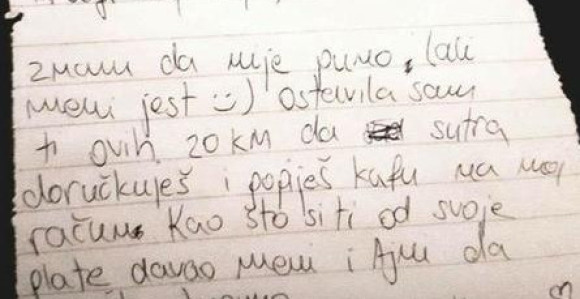 znam da nije puno, (ali
meni jest :) Ostavila sam
ti ovih 20 KM da sutra
doručkuješ i popiješ kafu na moj
račun. Kao što si ti od svoje
plate davao meni i Ajni da